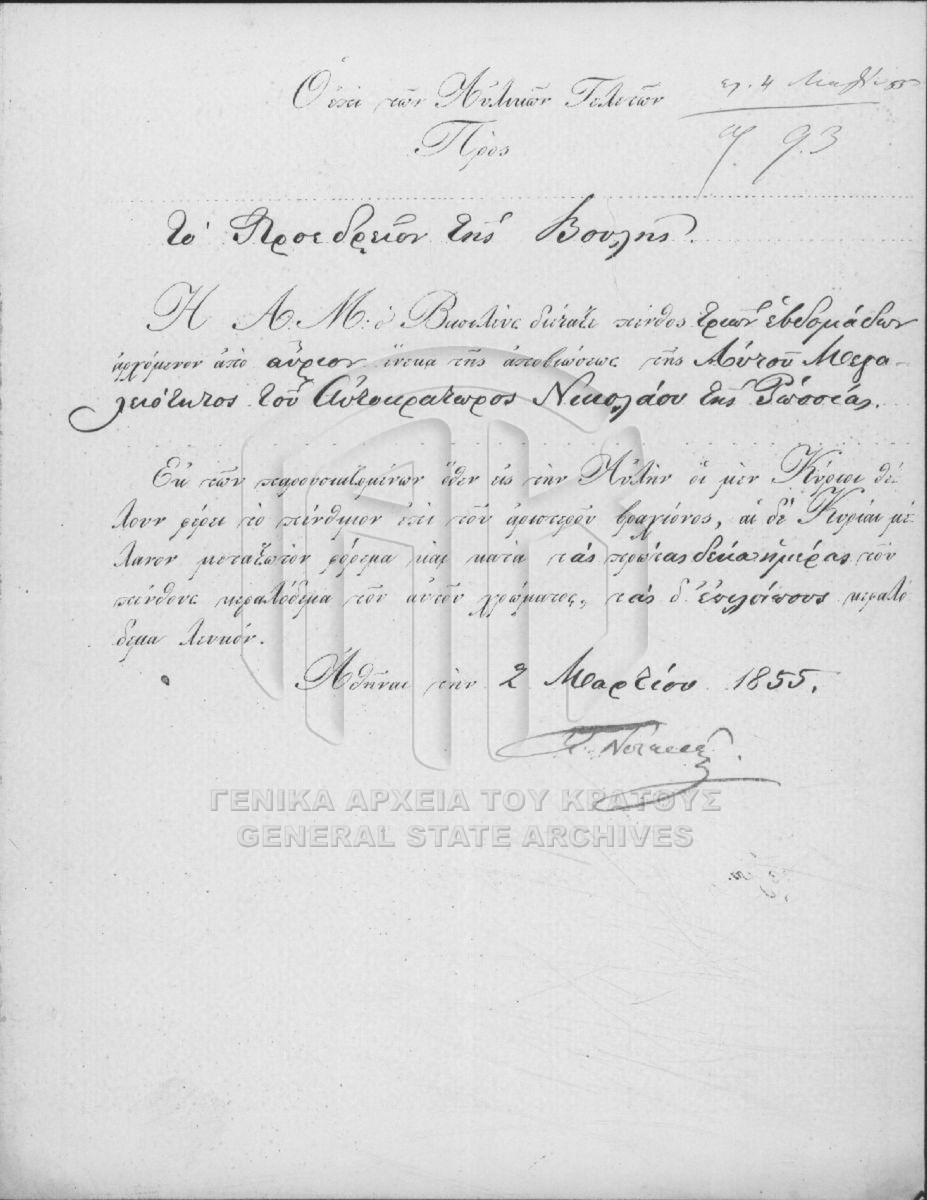 Ὁ ἐπὶ τῶν Αὐλικῶν Τελετῶν
ἐλ. 4 Μαρτίου 55
93
Πρὸς
τὸ Προεδρεῖον τῆς Βουλῆς.
Ἡ Α. Μ. ὁ Βασιλεὺς διέταξε πένθος τριῶν ἑβδομάδων
ἀρχόμενον ἀπὸ αὔριον ἕνεκα τῆς ἀποβιώσεως τῆς Αὐτοῦ Μεγα-
λειότητος τοῦ Αὐτοκράτωρος Νικολάου τῆς Ῥωσσίας.
Ἐκ τῶν παρουσιαζομένων ὅθεν εἰς τὴν Αὐλὴν οἱ μὲν Κύριοι θέ
λουν φέρει τὸ πένθιμον ἐπὶ τοῦ ἀριστεροῦ βραχίονος, αἱ δὲ Κυρίαι μέ
λανον μεταξωτὸν φόρεμα καὶ κατὰ τὰς πρώτας δέκα ἡμέρας τοῦ
πένθους κεφαλόδεμα τοῦ αὐτοῦ χρώματος, τὰς δ' ἐπιλοίπους κεφαλό
δεμα λευκόν.
Ἀθῆναι τὴν 2 Μαρτίου 1855.
ΓΕΝΙΚΑ ΑΡΧΕΙΑ ΤΟΥ ΚΡΑΤΟΥΣ
GENERAL STATE ARCHIVES